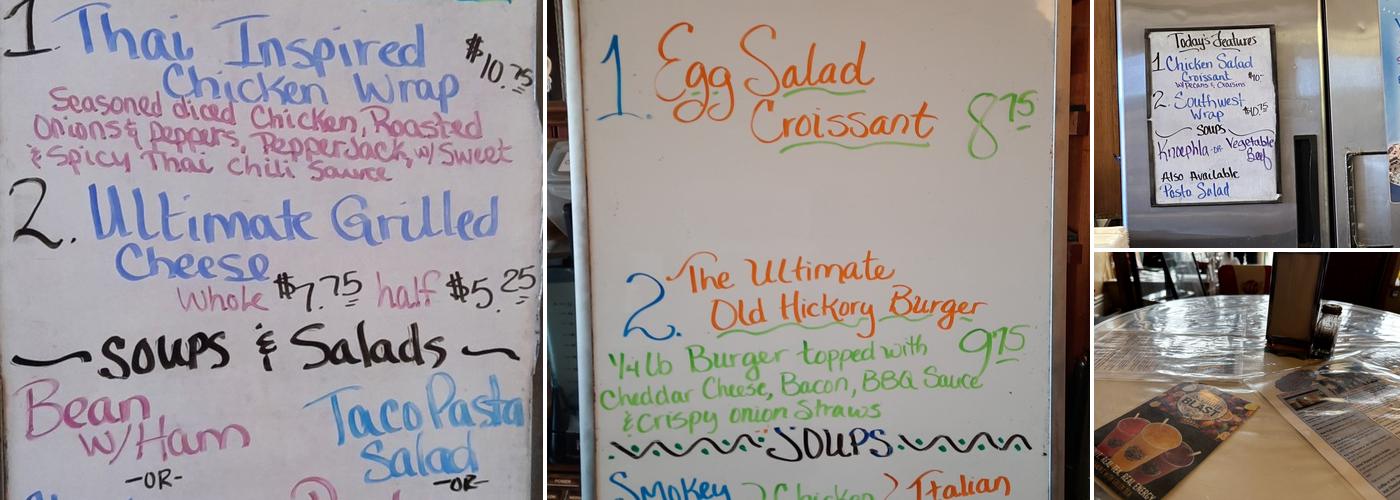 1. Thai Inspired
Chicken Wrap
$10.75
Seasoned diced Chicken, Roasted
Onions & Peppers, PepperJack, w/ Sweet
& Spicy Thai Chili Sauce
2. Ultimate Grilled
Cheese
Whole $7.75 half $5.25
Soups & Salads
Bean
w/Ham
-OR-
Taco Pasta
Salad
-OR-
1. Egg Salad
Croissant 8 75
2. The Ultimate
Old Hickory Burger
9 75
1/4 lb Burger topped with
Cheddar Cheese, Bacon, BBQ Sauce
& Crispy onion Straws
SOUPS
Smokey
Chicken
Italian
Today's Features
1 Chicken Salad
Croissant $10-
w/Pecans & Craisins
2. Southwest
Wrap $10.75
SOUPS
Knoephla -OR- Vegetable
Beef
Also Available
Pasta Salad
BLAST